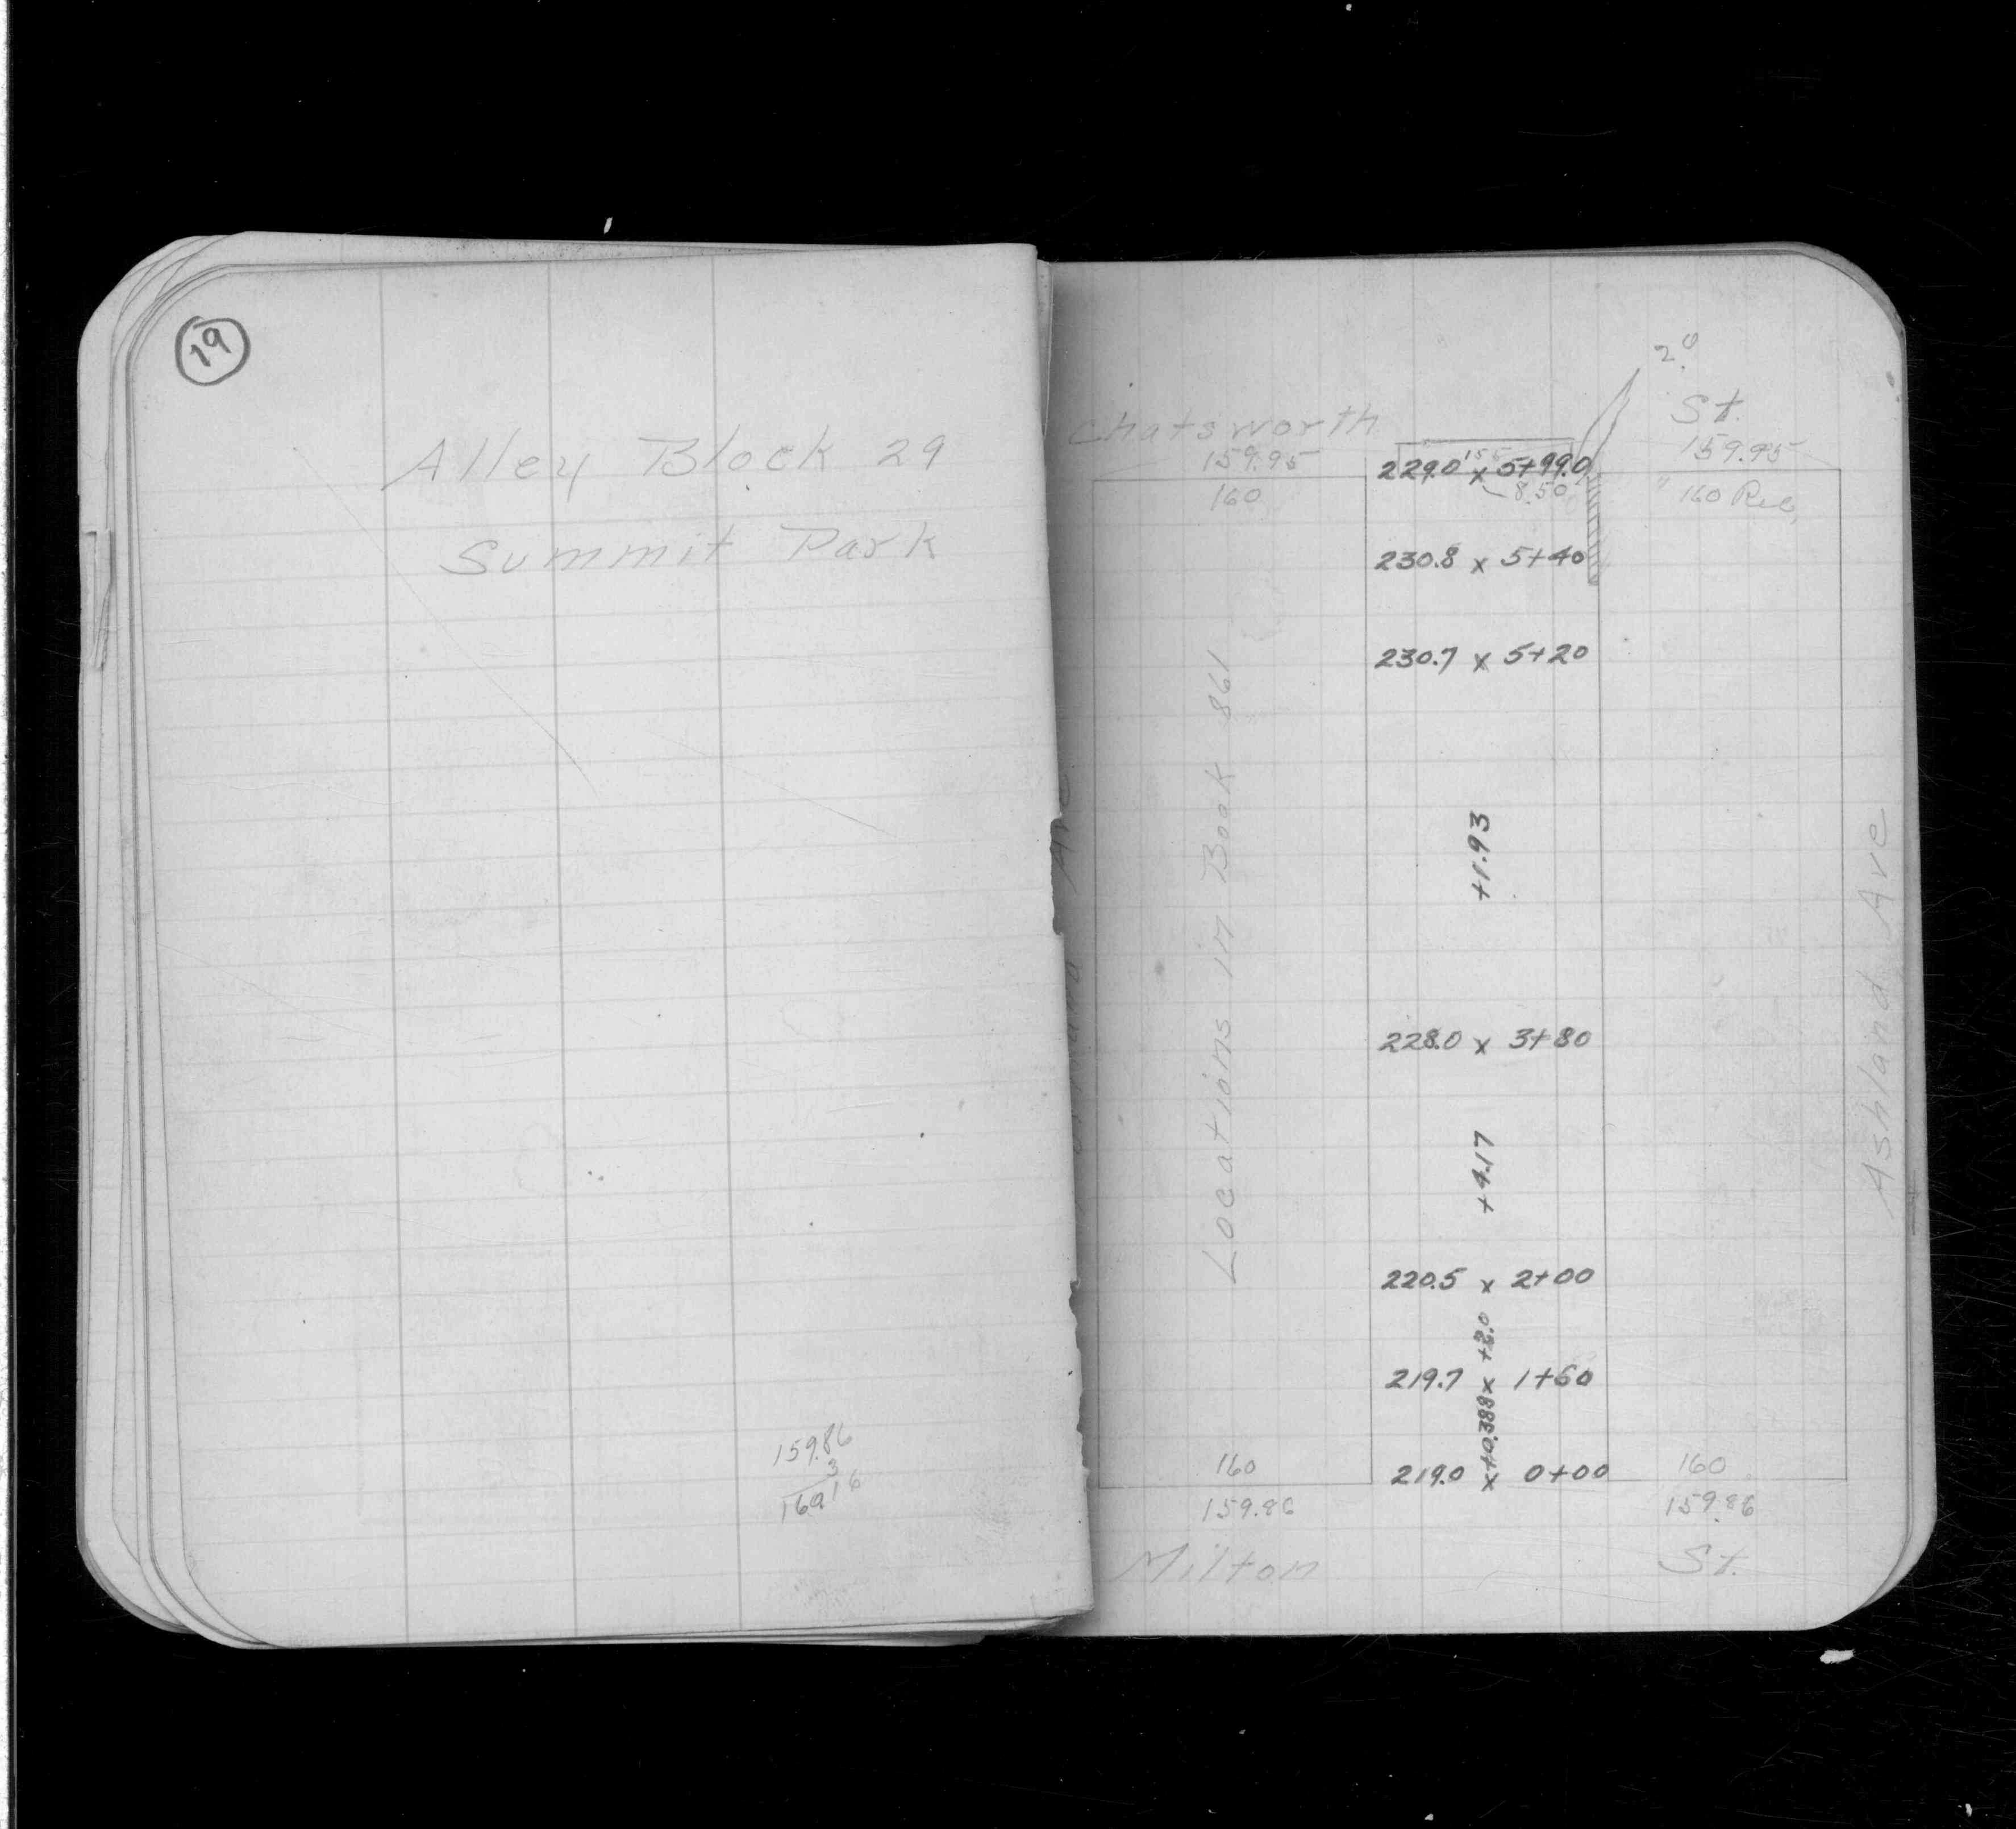 19
Alley Block 29
Summit Park
159.86
3
160.16
2.0
Chatsworth St.
159.95 159.95
229.0 x 5+99.0
160 8.50 160 Rec.
230.8 x 5+40
230.7 x 5+20
+1.93
Locations in Book 861
228.0 x 3+80
Ashland Ave
+4.17
220.5 x 2+00
+2.0
219.7 x 1+60
+0.388
219.0 x 0+00
160 160
159.86 159.86
Milton St.